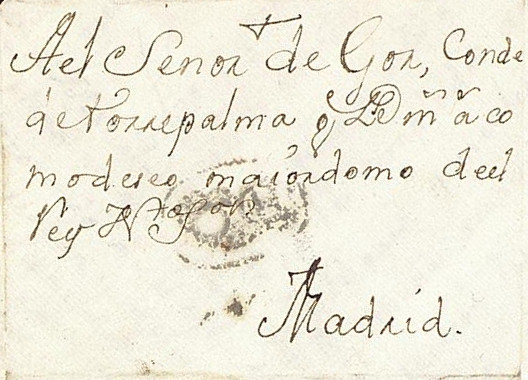 Ael Senor de Gor, Conde
de torrepalma q D m a co
mo deseo maiordomo deel
Rey N Sor
Madrid.